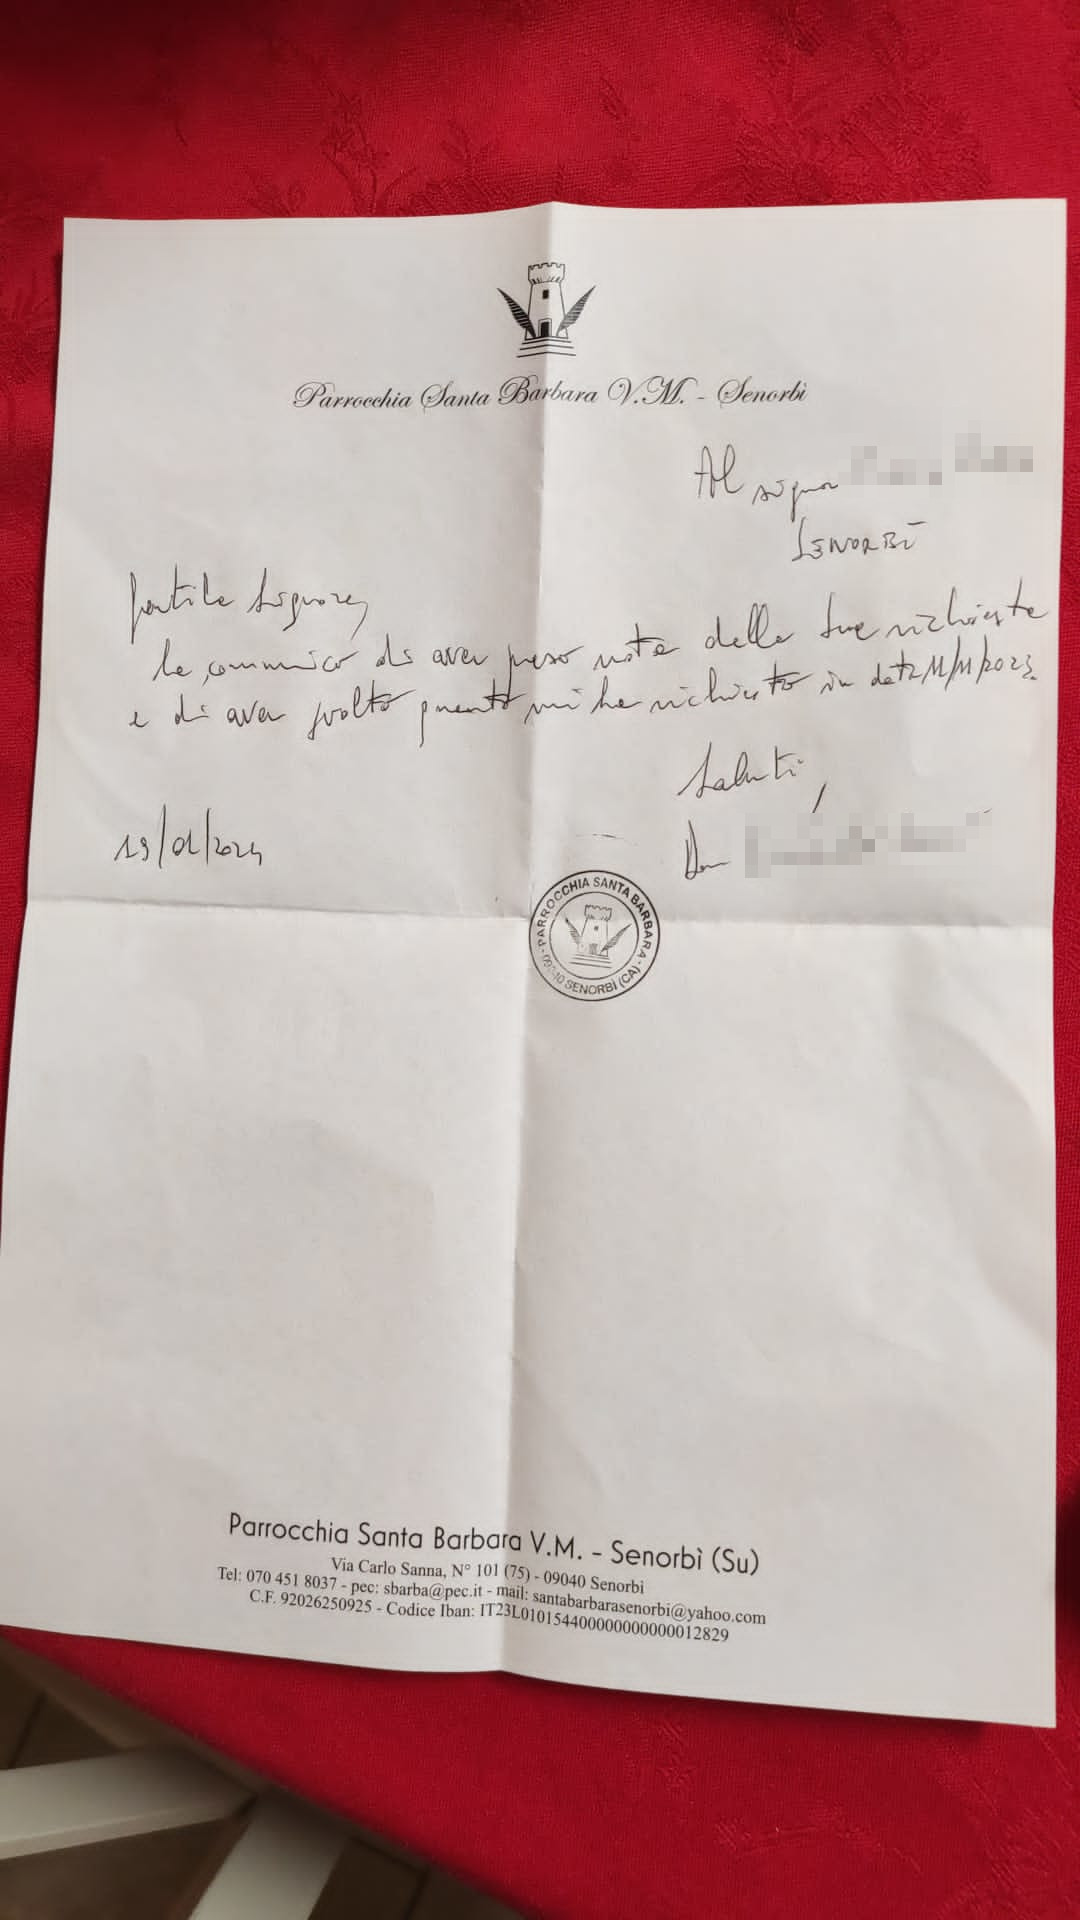 Parrocchia Santa Barbara V.M. - Senorbì
Al signor
SENORBÌ
Gentile Signore,
le comunico di aver preso nota della Sua richiesta
e di aver svolto quanto mi ha richiesto in data 11/11/2023.
Saluti,
19/01/2024
Don
PARROCCHIA SANTA BARBARA
SENORBÌ (CA)
Parrocchia Santa Barbara V.M. - Senorbì (Su)
Via Carlo Sanna, N° 101 (75) - 09040 Senorbì
Tel: 070 451 8037 - pec: sbarba@pec.it - mail: santabarbarasenorbi@yahoo.com
C.F. 92026250925 - Codice Iban: IT23L0101544000000000012829